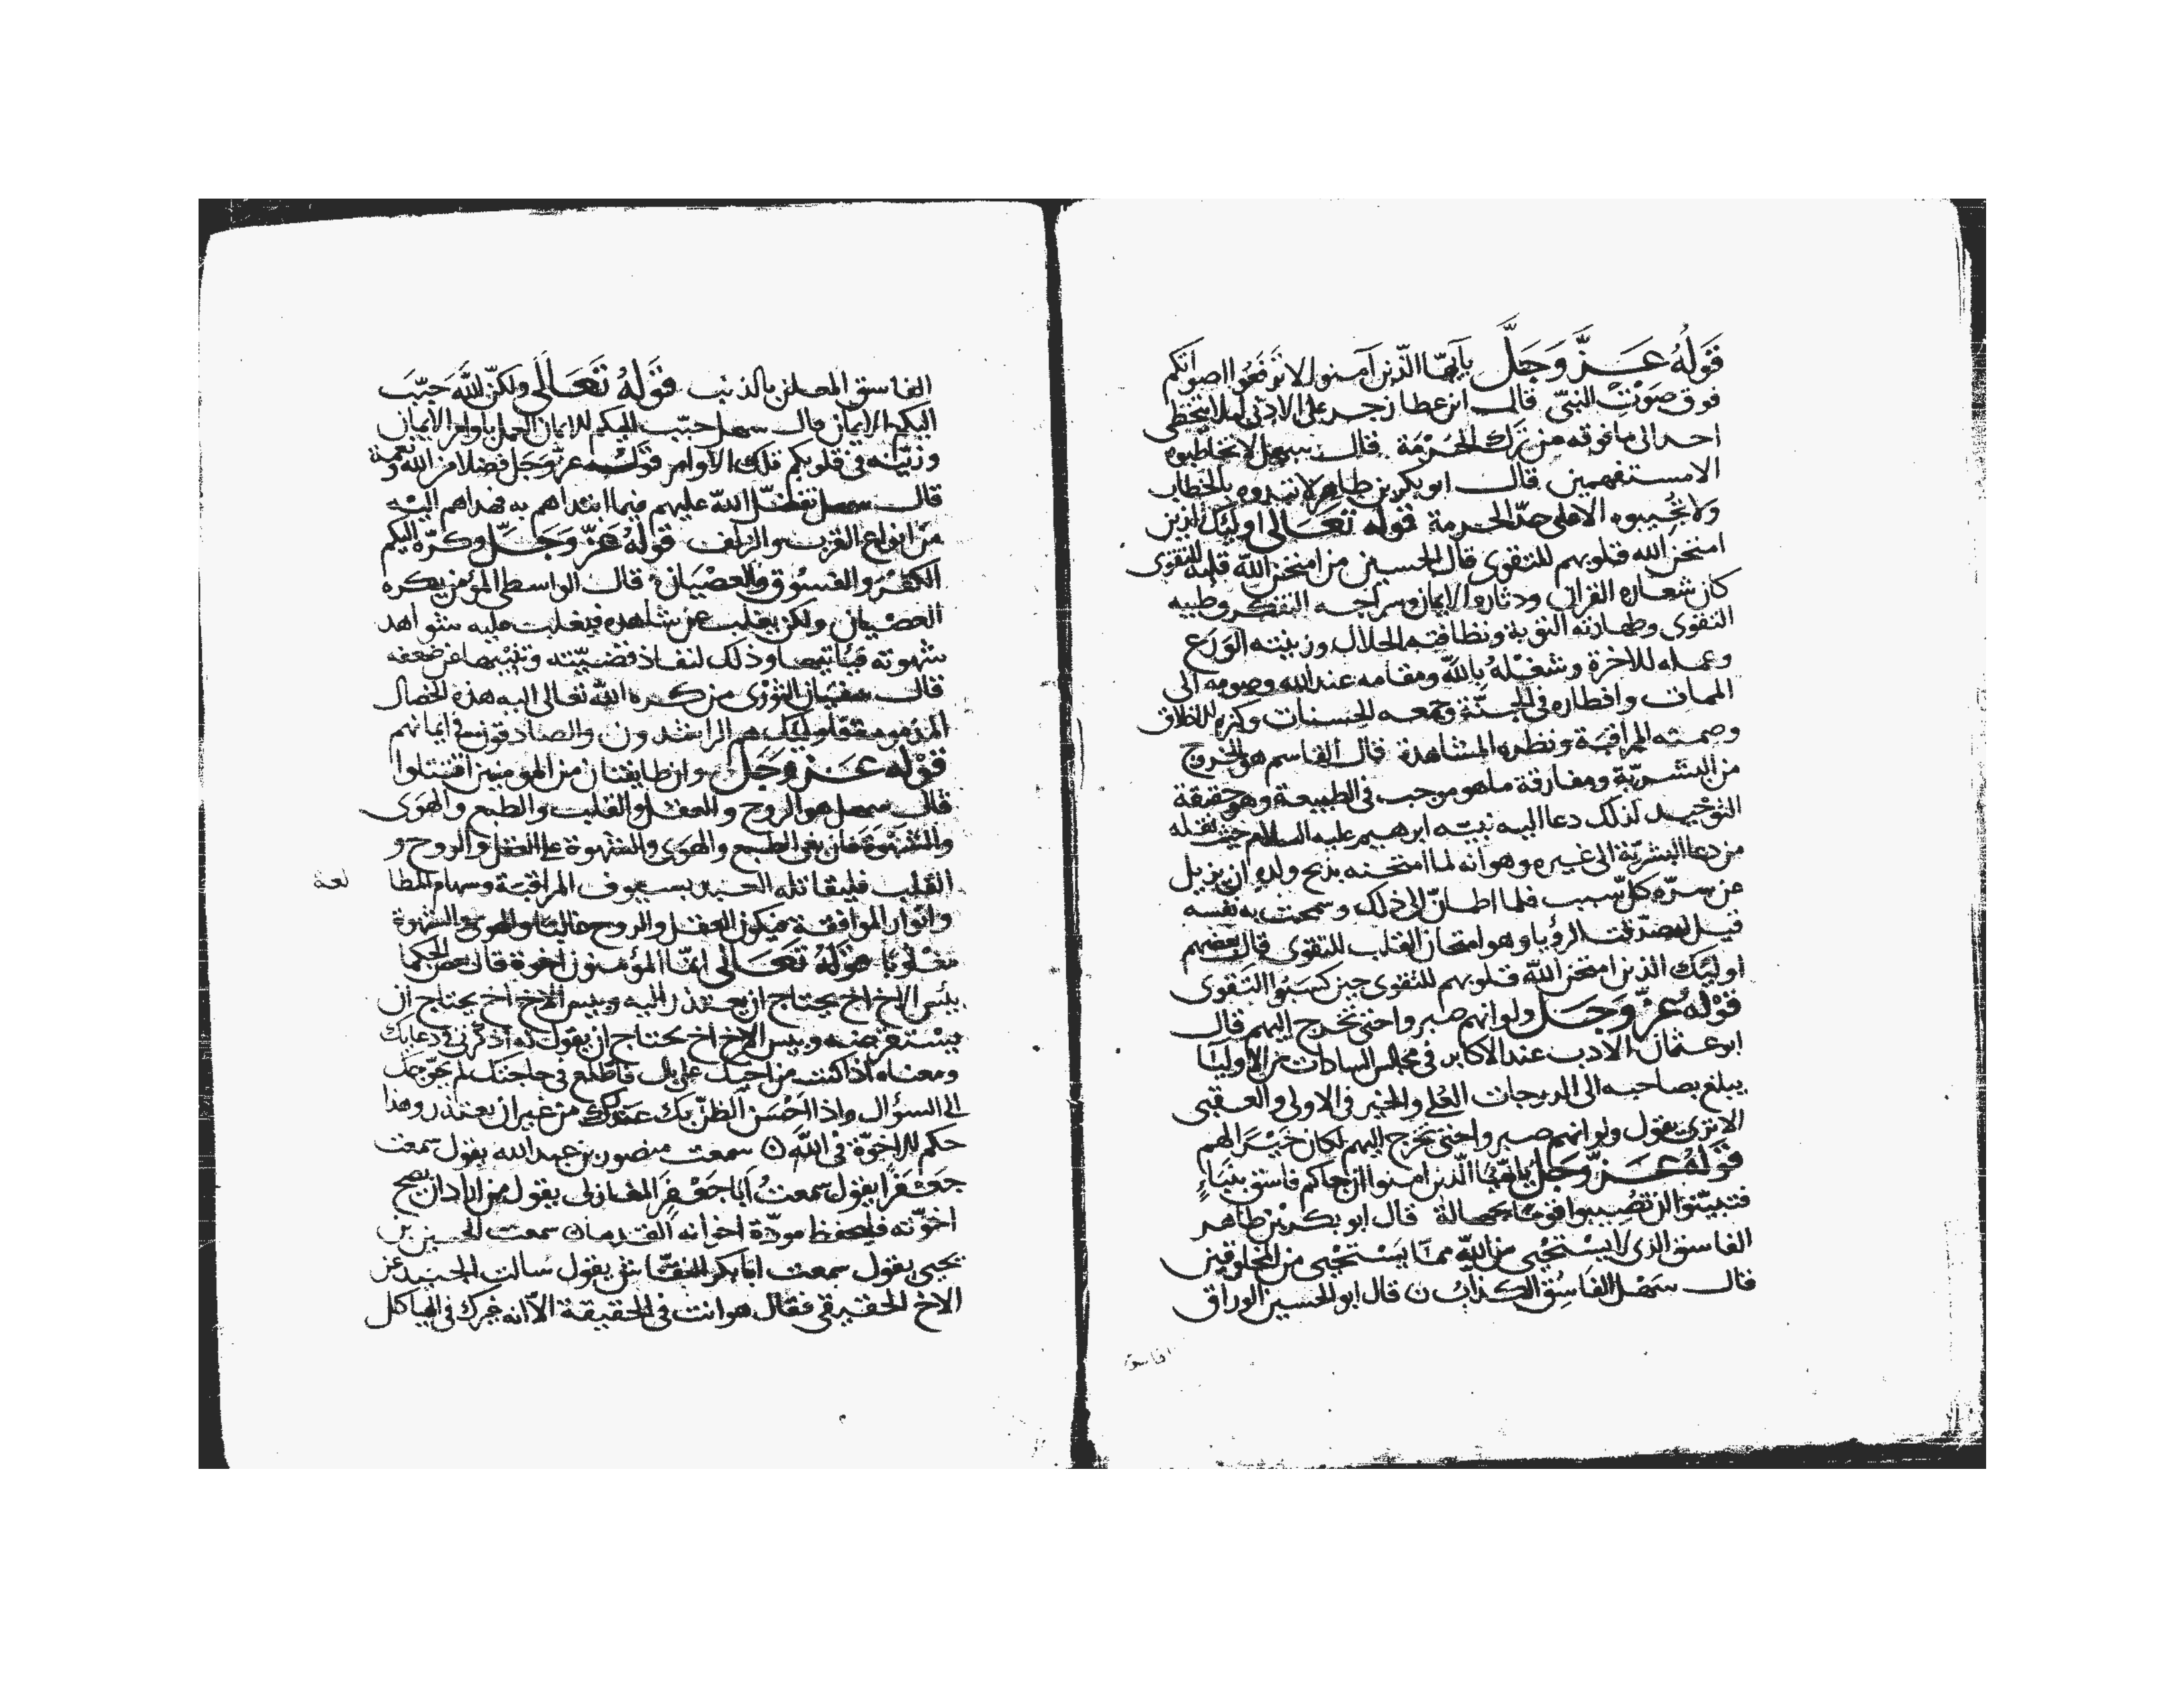 قَوْلُهُ عَزَّ وَجَلَّ يآيّها الّذين آمنوا لا ترفعوا اصواتكم
فوق صَوْت النبيّ قال ابن عطا زجر على الادنى ليلا يتخطى
احد الى ما فوقه من ترك الحُرْمَة قال سهل لا تخاطبوه
الا مستفهمين قال ابو بكر بن طاهر لا تبدوه بالخطاب
ولا تُجيبوه الا على حدّ الحرمة قوله تَعَالى اوليك الذين
امتحن الله قلوبهم للتقوى قال الحسين من امتحن الله قلبه للتقوى
كان شعاره القرآن ودثاره الايمان وسراجه التفكر وطيبه
التقوى وطهارته التوبة ونظافته الحلال وزينته الوَرَع
وعمله للاخرة وشغْلهُ بالله ومقامه عند الله وصومه الى
الممات وافطاره في الجنّة وجمعه الحسنات وكنزه الاخلاق
وصمته المراقبة ونظره المشاهدة قال القاسم هو الخروج
من البشريّة ومفارقة ما هو موجب في الطبيعة وهو حقيقة
التوحيد لذلك دعا اليه نبيّه ابرهيم عليه السلام حيث نقله
من دعا البشريّة الى غيره وهو انه لما امتحنه بذبح ولده ان يزيل
عن سرّه كلّ سبب فلما اطمانّ الى ذلك وسمحت به نفسه
قيل له صدّقت الرؤيا وهو امتحان القلب للتقوى قال بعضهم
اوليك الذين امتحن الله قلوبهم للتقوى حين كسَبُوا التقوى
قَوْلهُ عزّ وَجَلّ ولو انهم صبروا حتى تخرج اليهم قال
ابو عثمان الادب عند الاكابر في مجالس السادات من الاوليَا
يبلغ بصاحبه الى الدرجات العُلى والخير في الاولى والعقبى
الا ترى يقول ولو انهم صبروا حتى تخرج اليهم لكان خَيْرًا لهم
قَوْلهُ عَزّ وَجَلّ يا ايّها الّذين امنوا ان جاكم فاسق بِنَبَاءٍ
فتبيّنوا ان تُصِيبوا قومًا بجهالة قال ابو بكر بْن طَاهر
الفاسق الذي لا يَسْتَحْيى من الله ممّا يَسْتَحْيى من المخلوقين
قال سَهْل الفَاسِق الكذابُ ن قال ابو الحسين الوراق
الفاسق
الفاسق المعلن بالذنب قَوْلهُ تَعَالَى ولكنّ اللّهَ حَبّبَ
اليكم الايمان قال سهل حبّب اليكم الايمان العمل باوامر الايمان
وزيّنه في قلوبكم تلك الاوامر قَوْلُه عزّ وَجَل فضلا من الله ونعمة
قال سهل تفضّل الله عليهم فيما ابتداهم به هداهم اليْه
من انواع القرب والزلف قَوْلُهُ عَزّ وَجَلّ وكرّه اليكم
الكفْرَ والفسُوق والعِصْيَان قال الواسطى المؤمن يكره
العصْيان ولكن يغلب عن شاهده فيغلب عليه شواهد
شهوته فياتيها وذلك لنفاذ قضيّته وتنبيها عن ضعفه
قال سفيان الثوْرى من كره الله تعالى اليه هذه الخصال
المذمومة فاوليك هم الراشدون والصادقون في ايمانهم
قَوْلُه عَزّ وَجَلّ وان طايفتان من المومنين اقتتلوا
قال سهل هو الروح والعقل والقلب والطبع والهَوَى
والشهْوَة فان بغى الطبع والهَوَى والشهوة على العقل والروح و
القلب فليقاتله العبد بسيوف المراقبة وسهام المطا
لعة
وانوار الموافقة ليكون العقل والروح غالبًا والهوى والشهوة
مغْلوبًا قَوْلُهُ تَعَالى انّما المؤمنون اخوة قال بعض الحكما
بِئسَ الاخ اخ يحتاج ان يعتذر اليه وبيس الاخ اخ يحتاج ان
وبيس الاخ اخ يحتاج ان يقول له اذكرني في دعايك
ومعناه اذا كنت من اخيك على بال فاطّلع في حاجتك لم يحوجك
الى السؤال واذا احْسَن الظنّ بك عذرك من غير ان يعتذر وهذا
حكم الاخوّة في اللّهَ ن سمعت منصور بن عبد الله يقول سمعت
جَعْفرًا يقول سمعتُ اَبا جَعْفرٍ المغازلى يقول من اراد ان تصحّ
اخوّته فليحفظ مودّة اخوانه القدمان سمعت الحسين بن
يحيى يقول سمعت ابا بكر النقّاش يقول سَالت الجنيد عن
الاخ الحقيقى فقال هو انت في الحقيقة الّا انه غيرك في الهياكل